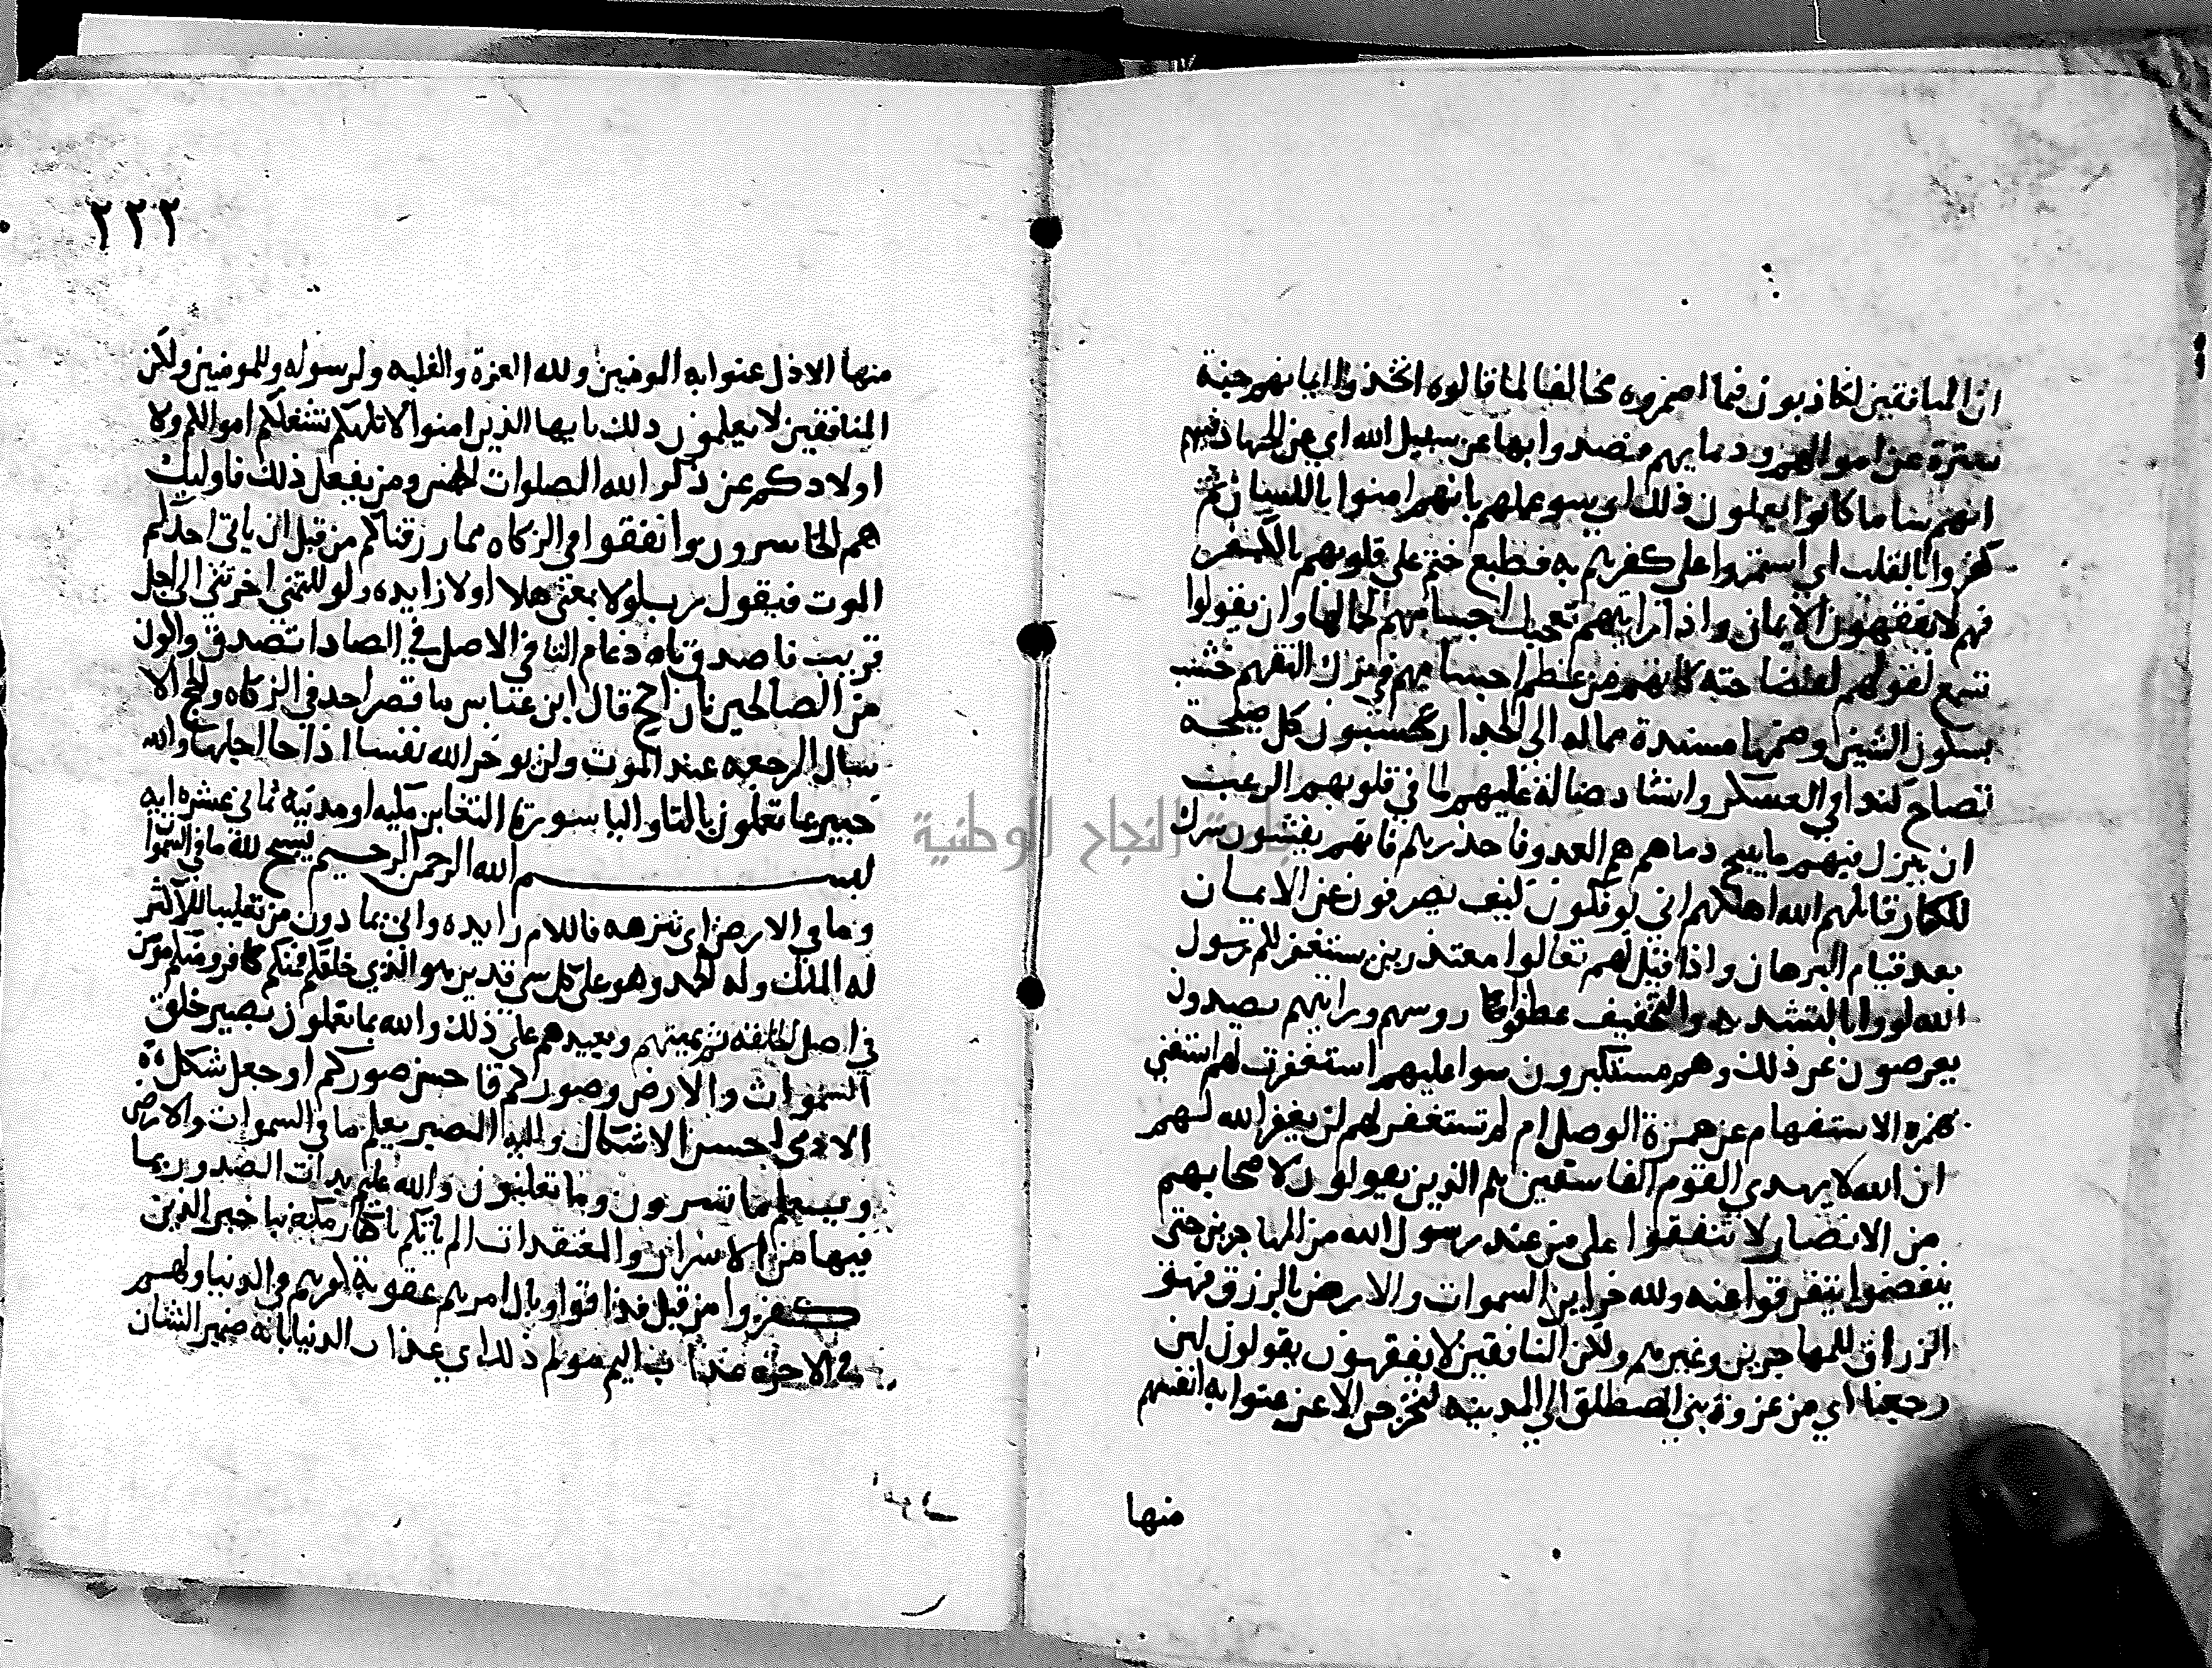 ان المنافقين لكاذبون فيما اضمروه مخالفا لما قالوه اتخذوا ايمانهم جنة
سترة عن اموالهم ودمايهم فصدوا بها عن سبيل الله اي عن الجهاد فيهم
انهم سا ما كانوا يعملون ذلك اي سو عملهم بانهم امنوا باللسان ثم
كفروا بالقلب اي استمروا على كفرهم به فطبع ختم على قلوبهم بالكفر
فهم لا يفقهون الايمان واذا رايتهم تعجبك اجسامهم لجمالها وان يقولوا
تسمع لقولهم لفصاحته كانهم من عظم اجسامهم في ترك التفهم خشب
بسكون الشين وضمها مسندة ممالة الى الجدار يحسبون كل صيحة
تصاح كندا في العسكر وانشاد ضالة عليهم لما في قلوبهم الرعب
ان ينزل فيهم ما يبيح دماهم هم العدو فاحذرهم فانهم يفشون سرك
للكفار قاتلهم الله اهلكهم انى يوفكون كيف يصرفون عن الايمان
بعد قيام البرهان واذا قيل لهم تعالوا معتذرين يستغفر لكم رسول
الله لووا بالتشديد والتخفيف عطفوا روسهم ورايتهم يصدون
يعرضون عن ذلك وهم مستكبرون سوا عليهم استغفرت لهم استغنى
بهمزه الاستفهام عن همزة الوصل ام لم تستغفر لهم لن يغفر الله لهم
ان الله لا يهدي القوم الفاسقين هم الذين يقولون لاصحابهم
من الانصار لا تنفقوا على من عند رسول الله من المهاجرين حتى
ينفضوا يتفرقوا عنه ولله خزاين السموات والارض بالرزق فهو
الرزاق للمهاجرين وغيرهم ولكن المنافقين لا يفقهون يقولون لين
رجعنا اي من غزوة بني المصطلق الى المدينه ليخرجن الاعز عنوا به انفسهم
منها
٢٢٢
منها الاذل عنوا به المومنين ولله العزة والغلبه ولرسوله وللمومنين ولكن
المنافقين لا يعلمون ذلك يايها الذين امنوا لا تلهكم تشغلكم اموالكم ولا
اولادكم عن ذكر الله الصلوات الخمس ومن يفعل ذلك فاوليك
هم الخاسرون وانفقوا في الزكاه مما رزقناكم من قبل ان ياتى احدكم
الموت فيقول رب لولا بمعنى هلا او لا زايده ولو للتمني اخرتنى الى اجل
قريب فاصدق بادغام التا في الاصل في الصاد اتصدق واكون
من الصالحين بان احج قال ابن عباس ما قصر احد في الزكاه والحج الا
سال الرجعه عند الموت ولن يوخر الله نفسا اذا جا اجلها والله
خبير بما تعملون بالتا واليا سورة التغابن مكيه او مدنية ثماني عشره ايه
بسم الله الرحمن الرحيم يسبح لله ما في السموات
وما في الارض اى تنزهه فاللام زايده واتى بما دون من تغليبا للاكثر
له الملك وله الحمد وهو على كل شى قدير هو الذي خلقكم فمنكم كافر ومنكم مومن
في اصل الخلقه ثم يميتهم ويعيدهم على ذلك والله بما تعملون بصير خلق
السموات والارض وصوركم فاحسن صوركم اذ جعل شكل
الادمى احسن الاشكال واليه المصير يعلم ما في السموات والارض
ويعلم ما تسرون وما تعلنون والله عليم بذات الصدور بما
فيها من الاسرار والمعتقدات الم ياتكم يا كفار مكة نبا خبر الذين
كفروا من قبل فذاقوا وبال امرهم عقوبة كفرهم في الدنيا ولهم
في الاخره عذاب اليم مولم ذلك اي عذاب الدنيا بانه ضمير الشان
جامعة النجاح الوطنية